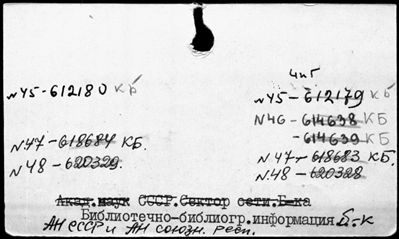 чиг
№45-612180 КБ №45-612179 КБ
№46-614638 КБ
-614639 КБ
№47-618684 КБ. №47-618683 КБ.
№48-620329. №48-620328
Акад.наук СССР.Сектор сети.Б-ка
Библиотечно-библиогр.информация Б-к
АН СССР и АН союзн. респ.